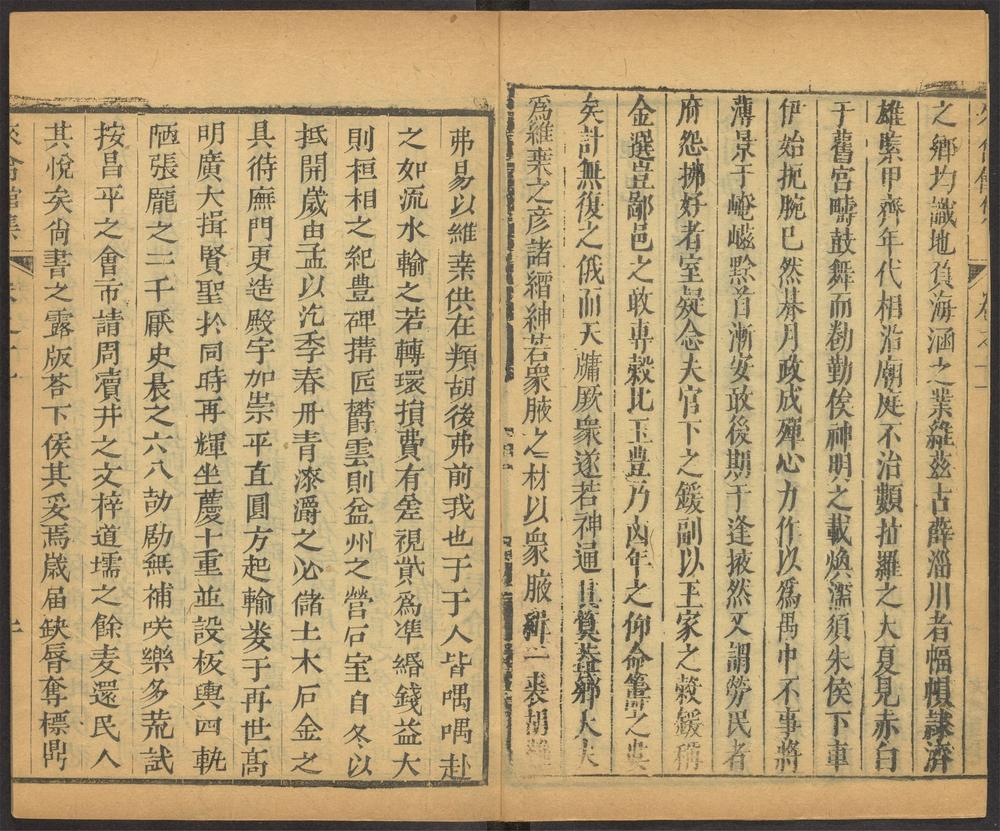 之鄉均識地負海涵之業維茲古薛淄川者幅幀隸濟
雄繄甲齊年代相沿廟庭不治顭拉羅之大夏見赤白
于舊宮疇鼓舞而勸勤俟神明之載煥濡須朱侯下車
伊始扼腕已然朞月政成殫心力作以爲禺中不事將
薄景于崦嵫黔首漸安敢後期于逢掖然又謂勞民者
府怨拂好者室疑念大官下之鍰副以王家之穀鍰稱
金選豈鄙邑之敢專穀比玉豊乃凶年之仰命籌之
矣計無復之俄而天牖厥衆遂若神通其筭葢鄉大夫
爲維桒之彦諸縉紳若衆腋之材以衆腋一裘胡難
弗易以維桒供在頖胡後弗前我也于于人皆喁喁赴
之如流水輸之若轉環損費有差視貲爲準緡錢益大
則桓相之紀豊碑搆匠欝雲則益州之營石室自冬以
抵開歲由孟以汔季春丹青漆瀞之必儲土木石金之
具待廡門更造殿宇加崇平直圓方起輸娄于再世高
明廣大揖賢聖於同時再輝坐蘷十重並設板輿四軌
陋張龎之二千厭史晨之六八劼劬無補咲樂多荒試
按昌平之會市請周瀆井之文梓道壖之餘麦還民人
其悅矣尚書之露版荅下侯其妥焉歲屆缺脣奪標鼎